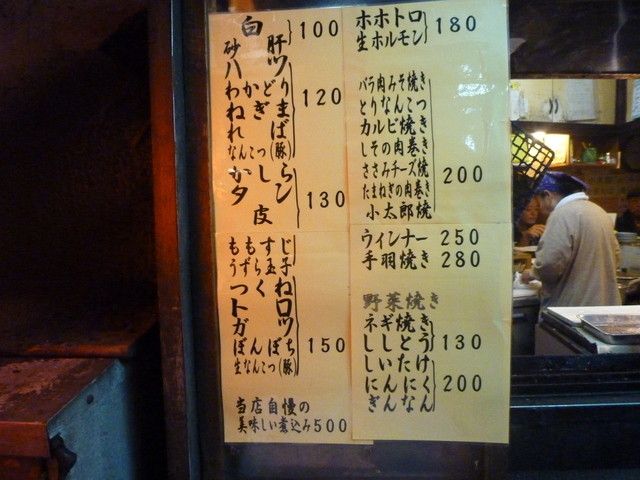 白 100
砂肝
ハツ
わかどり
ねぎま 120
れば
なんこつ(豚)
かしら
タン 130
皮
ももすじ
うずら玉子
つくね
トロ
ガツ
ぼんぼち 150
生なんこつ(豚)
当店自慢の
美味しい煮込み500
ホホトロ
生ホルモン 180
バラ肉みそ焼き
とりなんこつ
カルビ焼き
しその肉巻き
ささみチーズ焼 200
たまねぎの肉巻き
小太郎焼
ウィンナー 250
手羽焼き 280
野菜焼き
ネギ焼き
ししとう 130
しいたけ
にんにく 200
ぎんなん